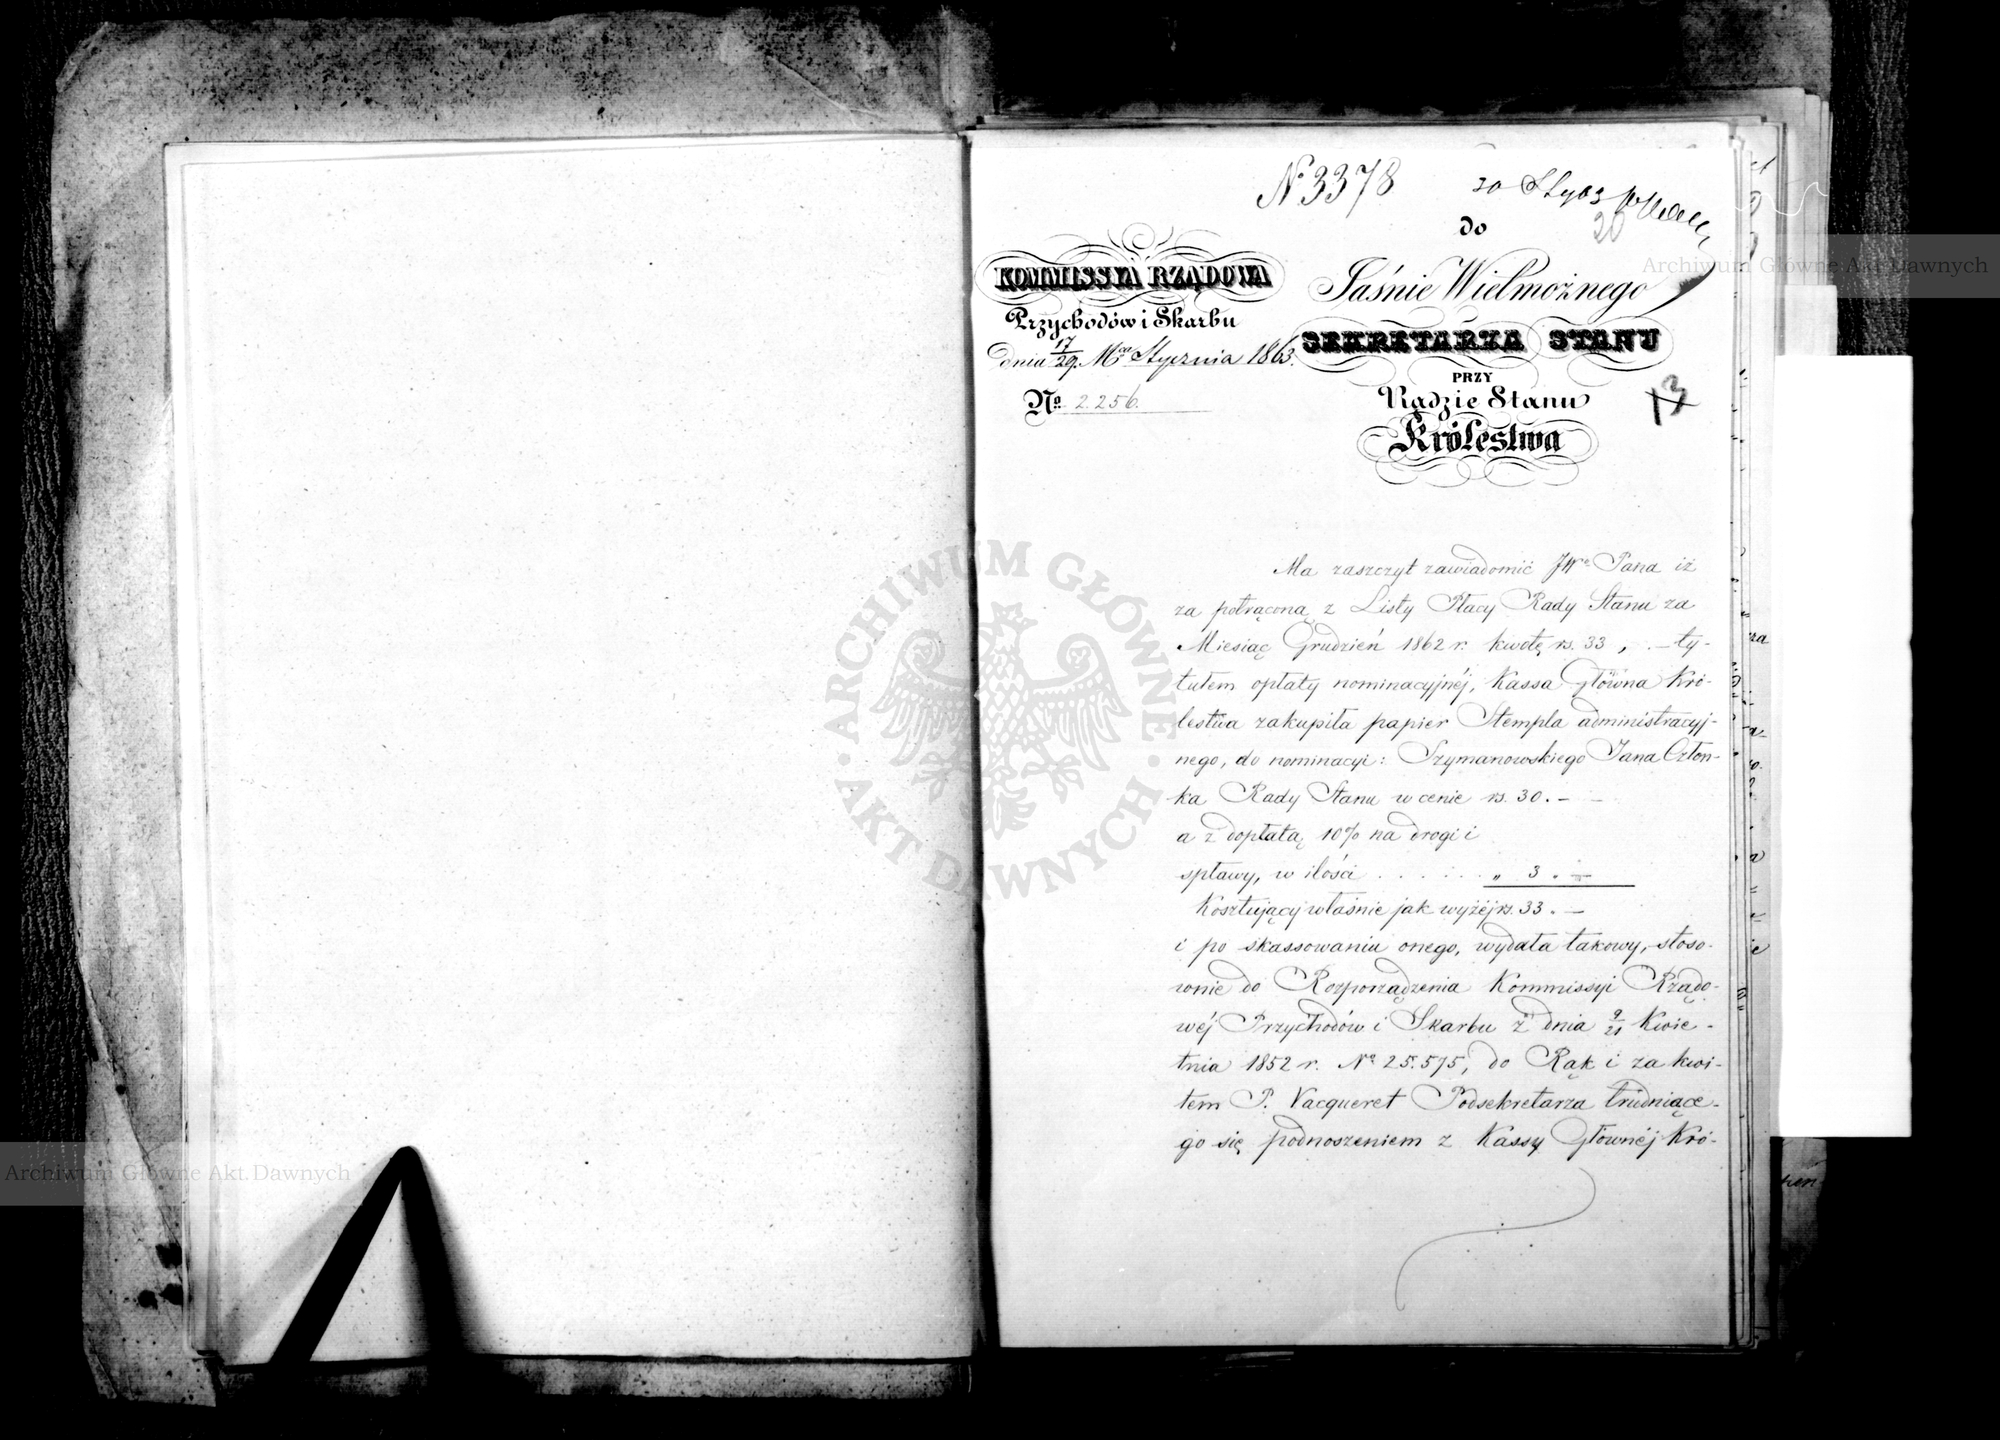 № 3378
20
do
KOMMISSYA RZĄDOWA
Przychodów i Skarbu
dnia 17/29 Mca Stycznia 1863.
No 2.256.
Jaśnie Wielmożnego
SEKRETARZA STANU
PRZY
Radzie Stanu
Królestwa
13
Ma zaszczyt zawiadomić JWo Pana iż
za potrąconą z Listy Płacy Rady Stanu za
Miesiąc Grudzień 1862 r. kwotę rs. 33 „ – ty-
tułem opłaty nominacyjnéj, Kassa Główna Kró-
lestwa zakupiła papier Stempla administracyj-
nego, do nominacyi: Szymanowskiego Jana Człon-
ka Rady Stanu w cenie rs. 30. –
a z dopłatą 10% na drogi i
spławy, w ilości . . . . . . „ 3 . –
Kosztujący właśnie jak wyżéj rs. 33. –
i po skassowaniu onego, wydała takowy, stoso-
wnie do Rozporządzenia Kommissyi Rządo-
wéj Przychodów i Skarbu z dnia 9/21 Kwie-
tnia 1852 r. No 25.575, do Rąk i za kwi-
tem P. Vacqueret Podsekretarza trudniące-
go się podnoszeniem z Kassy Głównéj Kró-
Archiwum Główne Akt Dawnych
Archiwum Główne Akt Dawnych
ARCHIWUM GŁÓWNE · AKT DAWNYCH ·